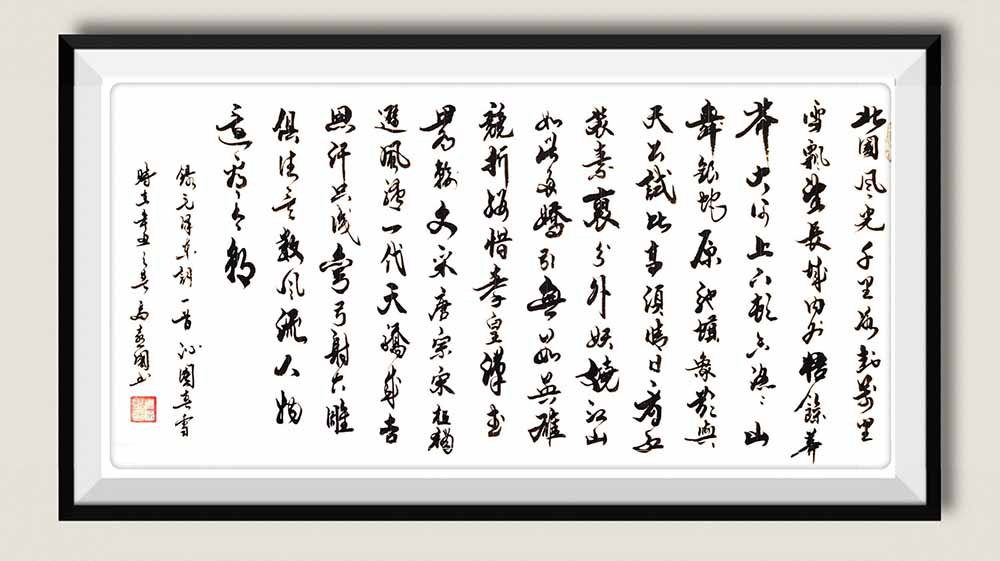 北国风光千里冰封萬里
雪飘望长城内外惟餘莽
莽大河上下顿失滔〻山
舞银蛇原驰蜡象欲與
天公试比高须晴日看红
装素裹分外妖娆江山
如此多娇引無数英雄
竞折腰惜秦皇汉武
略输文采唐宗宋祖稍
逊风骚一代天骄成吉
思汗只识弯弓射大雕
俱往矣数风流人物
还看今朝
录毛泽东词一首沁园春雪
時在辛丑之 国书